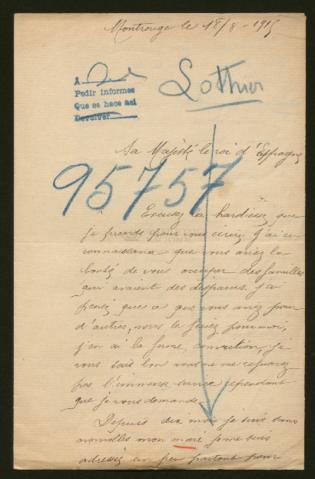 Montrouge le 18/8-1915
A
Pedir informes
Que se hace así
Devolver
Lothier
95757
Sa Majesté le roi d'Espagne
Excusez la hardiesse que
je prends pour vous écrire j'ai eu
connaissance que vous aviez la
bonté de vous occuper des familles
qui avaient des disparus. j'ai
pensé que ce que vous aviez pour
d'autres, vous le feriez pour moi,
j'en ai la ferme conviction, je
vous sais bon vous ne me refuserez
pas l'immense service cependant
que je vous demande.
Depuis dix mois je suis sans
nouvelles mon mari je me suis
adressée un peu partout pour